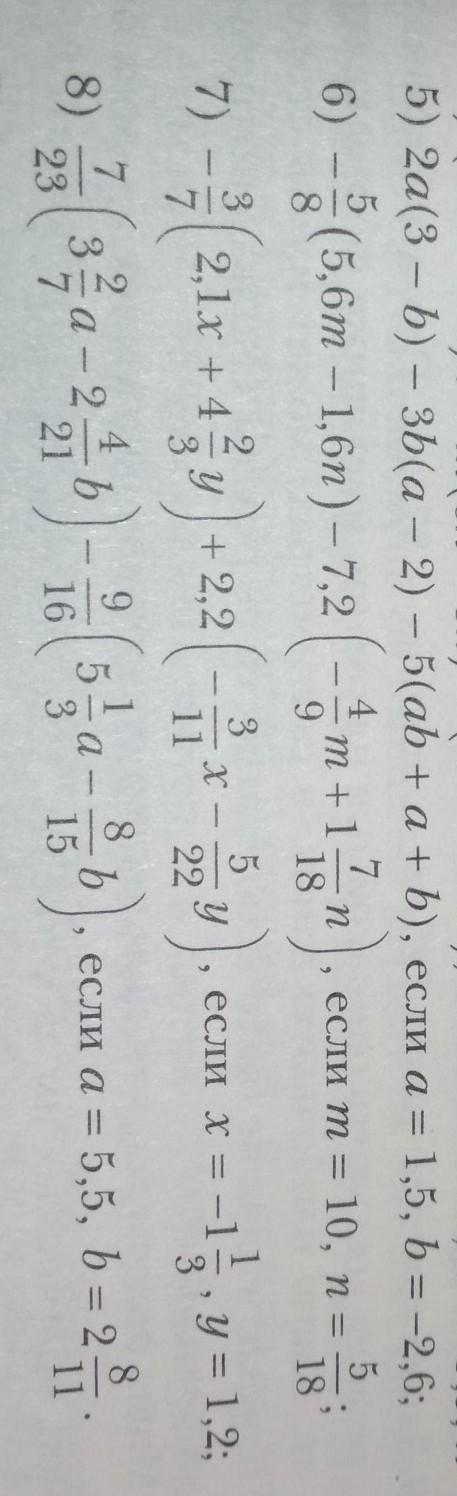 5) 2a(3 − b) − 3b(a − 2) − 5(ab + a + b), если a = 1,5, b = −2,6;
6) −5/8(5,6m − 1,6n) − 7,2(−4/9m + 1 7/18n), если m = 10, n = 5/18;
7) −3/7(2,1x + 4 2/3y) + 2,2(−3/11x − 5/22y), если x = −1 1/3, y = 1,2;
8) 7/23(3 2/7a − 2 4/21b) − 9/16(5 1/3a − 8/15b), если a = 5,5, b = 2 8/11.